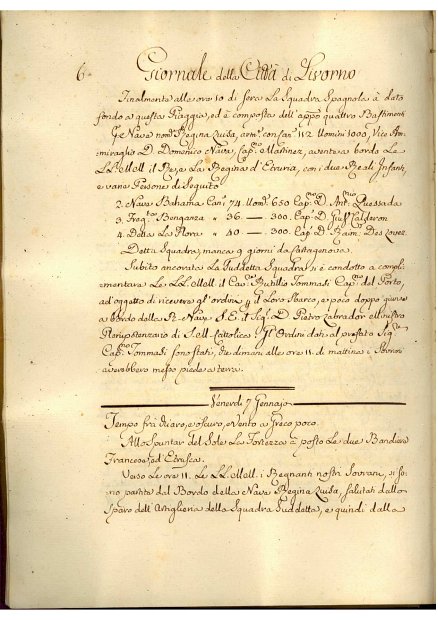 6.
Giornale della Città di Livorno
Finalmente alle ore 10 di sera La Squadra Spagnola à dato
fondo a questa Piaggia, ed è composta dell'appo quattro Bastimenti
Nave nom.ta Regina Luisa, con Can.i 112. Uomini 1000, Vice Am-
miraglio D. Domenico Nava, Cap.o Martinez, avente a bordo Le
LL. MM. il Re, e La Regina d'Etruria, con i due Reali Infanti,
e varie Persone di Seguito
2. Nave Bahama Can.i 74. Uom.i 650 Cap.o D. Ant.nio Quessada
3. Freg.ta Benganza " 36. — 300. Cap.o D. Calderon
4. Detta La Flora " 40. — 300. Cap.o D. Raim.
Detta Squadra, manca 9 giorni da Cartagenova.
Subito ancorata La suddetta Squadra si è condotto a compli-
mentare Le LL. MM. il Cav.re Basilio Tommasi Cap.o del Porto,
ad'oggetto di ricevere gl'ordini p il Loro Sbarco, e poco doppo giunse
a bordo della R. Nave S. E. il Sig.r D. Pietro Labrador Ministro
Plenipotenziario di S. M. Cattolica. Gl'Ordini dati al prefato Sig.r
Cap.o Tommasi sono stati, che dimani alle ore 11. di mattina i Sovrani
averebbero messo piede a terra.
Venerdi 7 Gennajo
Tempo frà chiaro, e oscuro, e Vento a Greco poco.
Allo Spuntar del Sole La Fortezza à posto Le due Bandiere
Francese, ed'Etrusca.
Verso Le ore 11. Le LL. MM. i Regnanti nostri Sovrani, si so-
no partiti dal Bordo della Nave Regina Luisa, salutati dallo
Sparo dell'Artiglieria della Squadra Suddetta, e quindi dalla